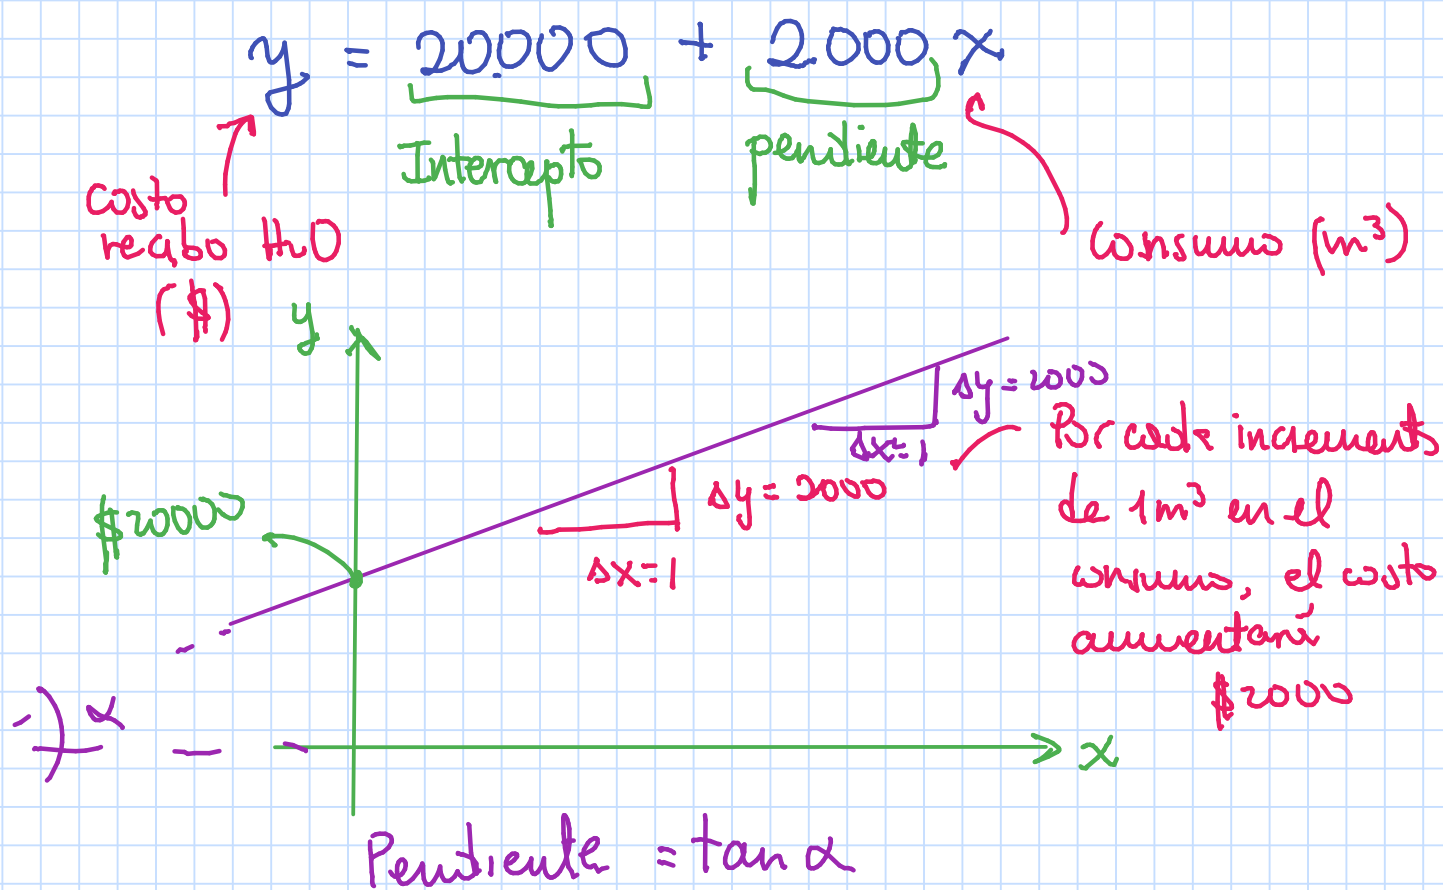 y = 20000 + 2000 x
Intercepto
pendiente
Costo
recibo H2O
($)
Consumo (m³)
y
Δy = 2000
Δx = 1
Por cada incremento
de 1m³ en el
consumo, el costo
aumentará
$2000
$20000
Δy = 2000
Δx = 1
α
x
Pendiente = tan α